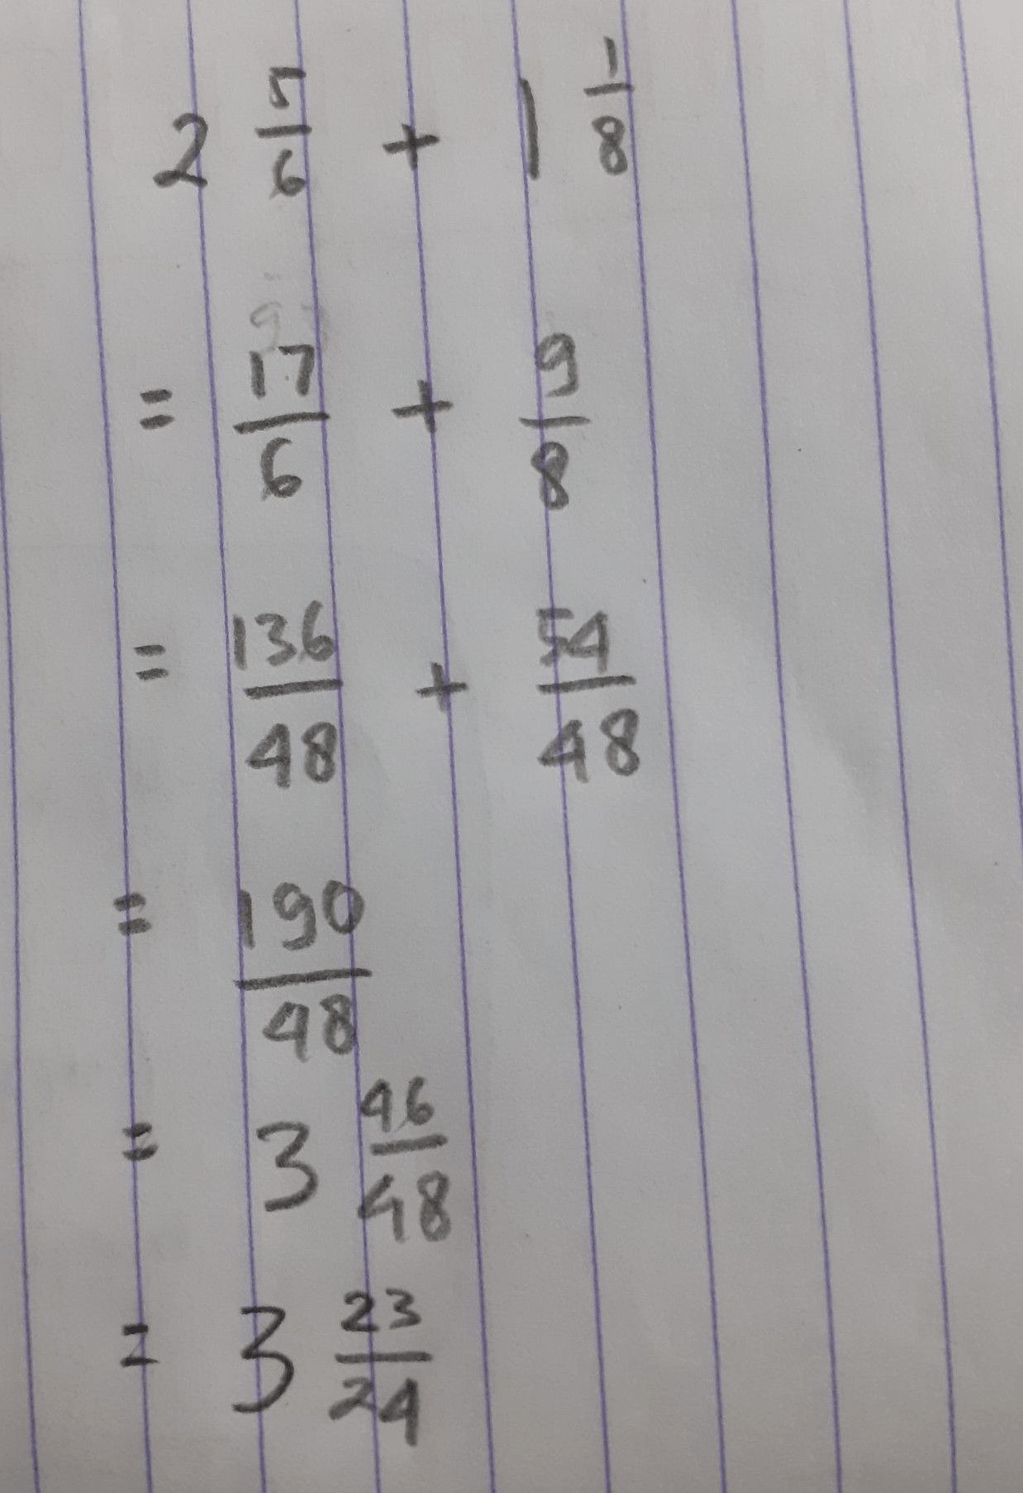 2 5/6 + 1 1/8
= 17/6 + 9/8
= 136/48 + 54/48
= 190/48
= 3 46/48
= 3 23/24